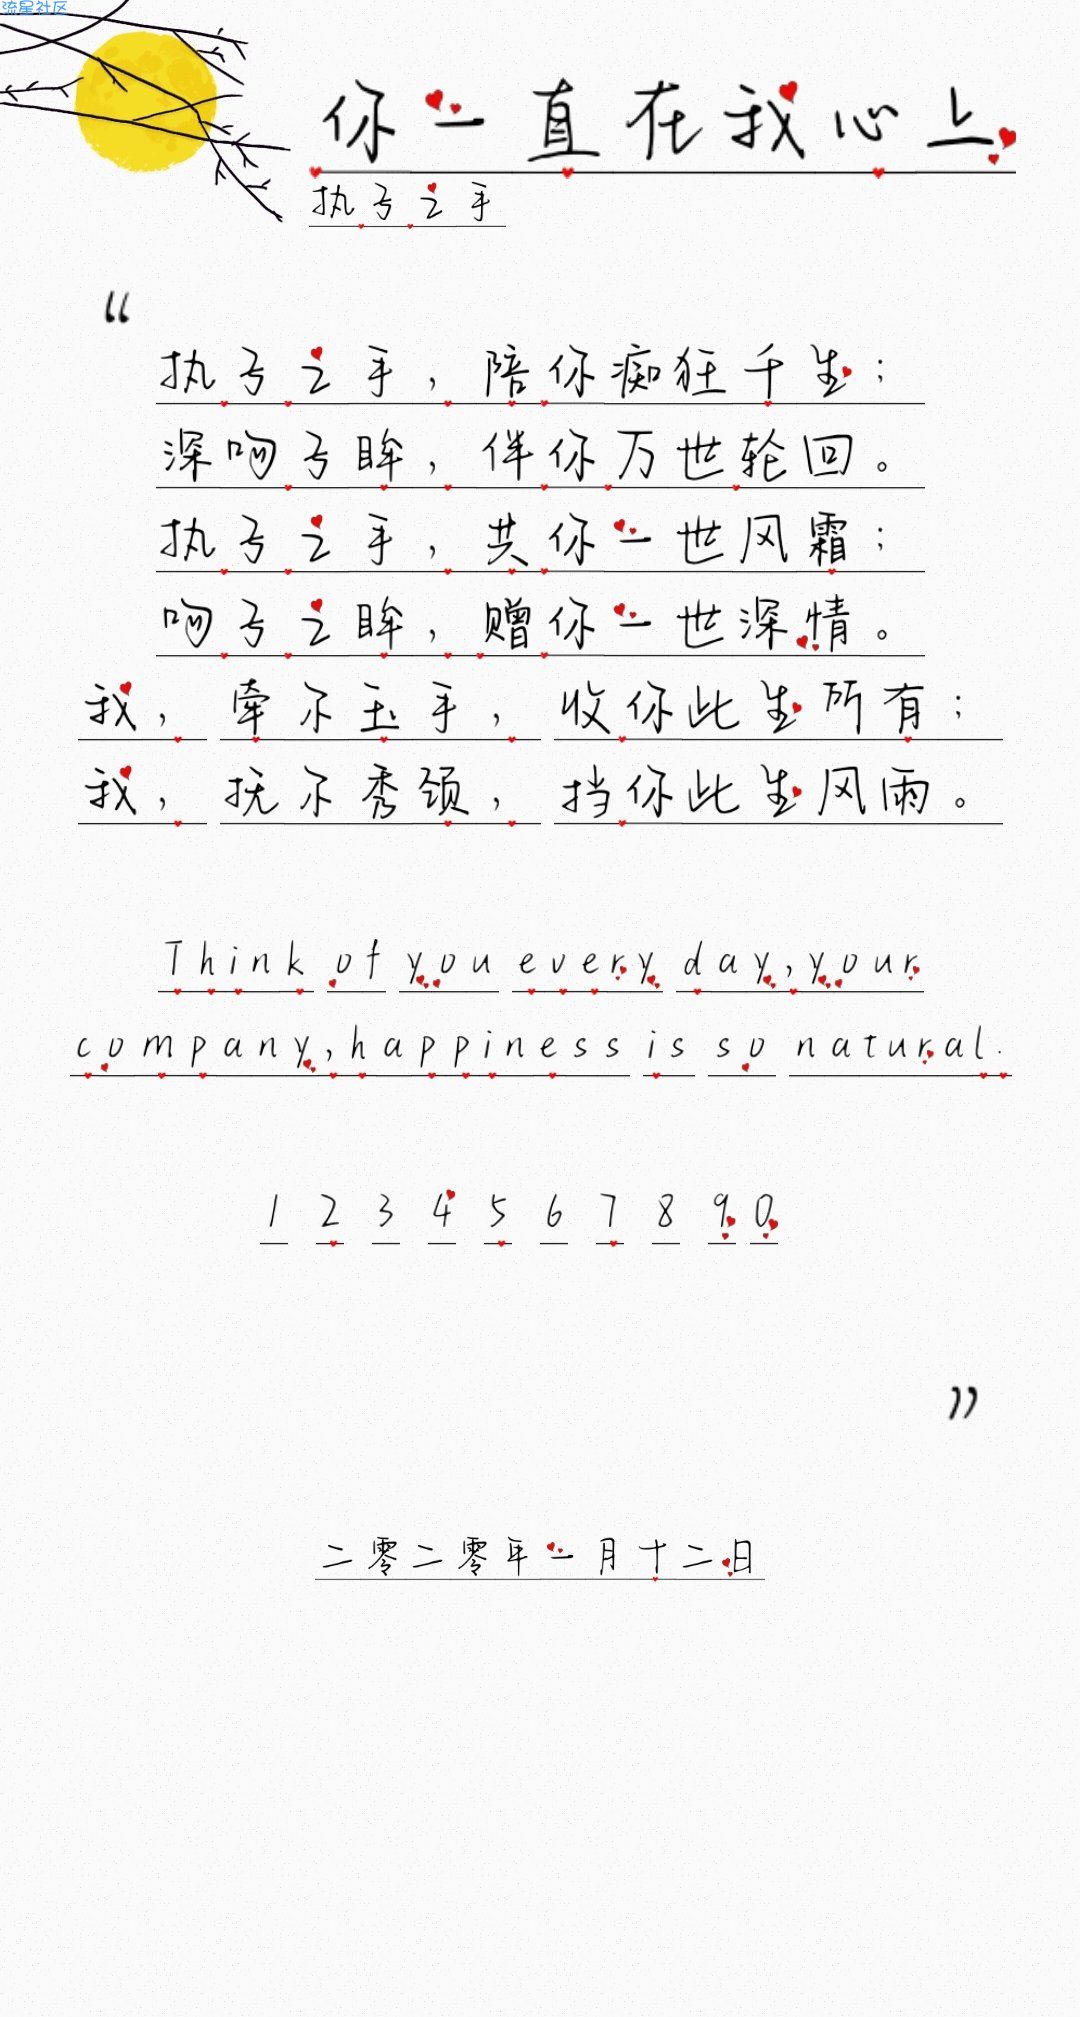 流星社区
你一直在我心上
执子之手
“
执子之手，陪你痴狂千生；
深吻子眸，伴你万世轮回。
执子之手，共你一世风霜；
吻子之眸，赠你一世深情。
我，牵尔玉手，收你此生所有；
我，抚尔秀颈，挡你此生风雨。
Think of you every day,your
company,happiness is so natural.
1 2 3 4 5 6 7 8 9 0
”
二零二零年一月十二日